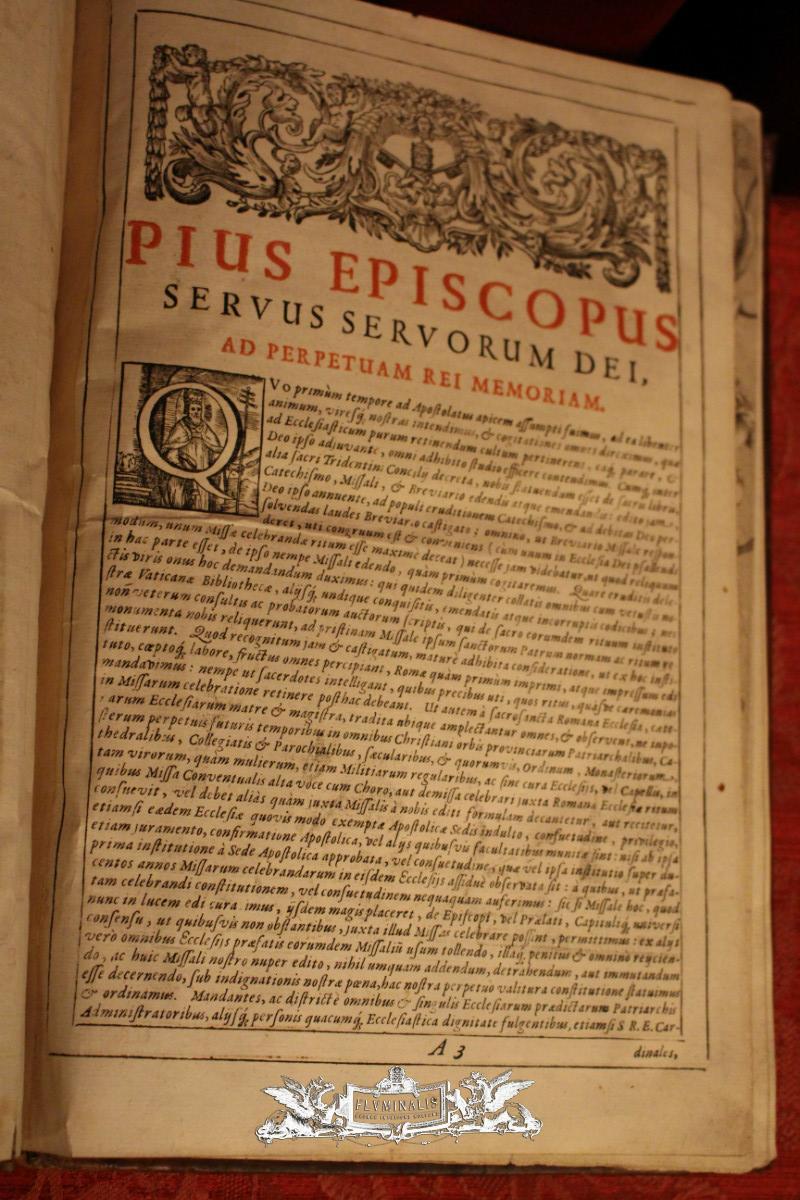 PIUS EPISCOPUS
SERVUS SERVORUM DEI,
AD PERPETUAM REI MEMORIAM.
QVo primùm tempore ad Apostolatus apicem assumpti fuimus, ad ea libenter
animum, viresq́; nostras intendimus, & cogitationes omnes direximus, quæ
ad Ecclesiasticum purum retinendum cultum pertinerent, eaq́; parare, &
Deo ipso adjuvante, omni adhibito studio efficere contendimus. Cumq́; inter
alia sacri Tridentini Concilij decreta, nobis statuendum esset de sacris libris,
Catechismo, Missali, & Breviario edendis atque emendandis: edito jam,
Deo ipso annuente, ad populi eruditionem Catechismo, & ad debitas Deo per-
solvendas laudes Breviario castigato; omnino, ut Breviario Missale respon-
deret, uti congruum est & conveniens (cum unum in Ecclesia Dei psallendi
modum, unum Missæ celebrandæ ritum esse maximè deceat) necesse jam videbatur, ut quod reliquum
in hac parte esset, de ipso nempe Missali edendo, quàm primùm cogitaremus. Quare eruditis dele-
ctis viris onus hoc demandandum duximus: qui quidem diligenter collatis omnibus cum vetustis no-
stræ Vaticanæ Bibliothecæ, alijsq́; undique conquisitis, emendatis atque incorruptis codicibus; nec
non veterum consultis ac probatorum auctorum scriptis, qui de sacro eorumdem rituum instituto
monumenta nobis reliquerunt, ad pristinam Missale ipsum sanctorum Patrum normam ac ritum re-
stituerunt. Quod recognitum jam & castigatum, maturè adhibita consideratione, ut ex hoc insti-
tuto, cœptoq́; labore, fructus omnes percipiant, Romæ quàm primùm imprimi, atque impressum edi
mandavimus: nempe ut sacerdotes intelligant, quibus precibus uti, quos ritus, quasve cæremonias
in Missarum celebratione retinere posthac debeant. Ut autem à sacrosancta Romana Ecclesia, cæte-
rarum Ecclesiarum matre & magistra, tradita ubique amplectantur omnes, & observent, ne inpo-
sterum perpetuis futuris temporibus in omnibus Christiani orbis provinciarum Patriarchalibus, Ca-
thedralibus, Collegiatis & Parochialibus, sæcularibus, & quorumvis, Ordinum, Monasteriorum,
tam virorum, quàm mulierum, etiam Militiarum regularibus, ac sine cura Ecclesijs, vel Capellis, in
quibus Missa Conventualis alta voce cum Choro, aut demissa celebrari juxta Romanæ Ecclesiæ ritum
consuevit, vel debet aliàs quàm juxta Missalis à nobis editi formulam decantetur, aut recitetur,
etiamsi eædem Ecclesiæ quovis modo exemptæ Apostolicæ Sedis indulto, consuetudine, privilegio,
etiam juramento, confirmatione Apostolica, vel alijs quibusvis facultatibus munitæ sint: nisi ab ipsa
prima institutione à Sede Apostolica approbata, vel consuetudine, quæ vel ipsa institutio super du-
centos annos Missarum celebrandarum in eisdem Ecclesijs assiduè observata sit: à quibus, ut præfa-
tam celebrandi constitutionem, vel consuetudinem nequaquam auferimus: sic si Missale hoc, quod
nunc in lucem edi curavimus, ijsdem magis placeret, de Episcopi, vel Prælati, Capituliq́; universi
consensu, ut quibusvis non obstantibus, juxta illud Missas celebrare possint, permittimus: ex alijs
verò omnibus Ecclesijs præfatis eorumdem Missaliū usum tollendo, illaq́; penitus & omnino reijcien-
do, ac huic Missali nostro nuper edito, nihil umquam addendum, detrahendum, aut immutandum
esse decernendo, sub indignationis nostræ pœna, hac nostra perpetuo valitura constitutione statuimus
& ordinamus. Mandantes, ac districtè omnibus & singulis Ecclesiarum prædictarum Patriarchis
Administratoribus, alijsq́; personis quacumq́; Ecclesiastica dignitate fulgentibus, etiamsi S. R. E. Car-
A 3
dinales,
FLVMINALIS